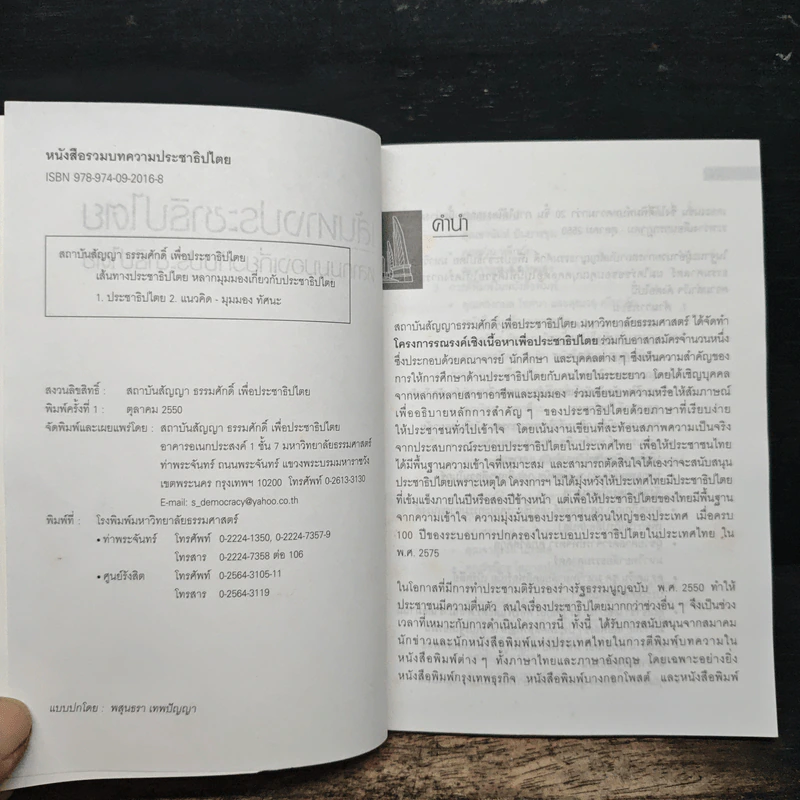 หนังสือรวมบทความประชาธิปไตย
ISBN 978-974-09-2016-8
สถาบันสัญญา ธรรมศักดิ์ เพื่อประชาธิปไตย
เส้นทางประชาธิปไตย หลากมุมมองเกี่ยวกับประชาธิปไตย
1. ประชาธิปไตย 2. แนวคิด - มุมมอง ทัศนะ
สงวนลิขสิทธิ์ : สถาบันสัญญา ธรรมศักดิ์ เพื่อประชาธิปไตย
พิมพ์ครั้งที่ 1 : ตุลาคม 2550
จัดพิมพ์และเผยแพร่โดย : สถาบันสัญญา ธรรมศักดิ์ เพื่อประชาธิปไตย
อาคารอเนกประสงค์ 1 ชั้น 7 มหาวิทยาลัยธรรมศาสตร์
ท่าพระจันทร์ ถนนพระจันทร์ แขวงพระบรมมหาราชวัง
เขตพระนคร กรุงเทพฯ 10200 โทรศัพท์ 0-2613-3130
E-mail: s_democracy@yahoo.co.th
พิมพ์ที่ : โรงพิมพ์มหาวิทยาลัยธรรมศาสตร์
• ท่าพระจันทร์ โทรศัพท์ 0-2224-1350, 0-2224-7357-9
โทรสาร 0-2224-7358 ต่อ 106
• ศูนย์รังสิต โทรศัพท์ 0-2564-3105-11
โทรสาร 0-2564-3119
แบบปกโดย : พสุนธรา เทพปัญญา
คำนำ
สถาบันสัญญาธรรมศักดิ์ เพื่อประชาธิปไตย มหาวิทยาลัยธรรมศาสตร์ ได้จัดทำ
โครงการรณรงค์เชิงเนื้อหาเพื่อประชาธิปไตย ร่วมกับอาสาสมัครจำนวนหนึ่ง
ซึ่งประกอบด้วยคณาจารย์ นักศึกษา และบุคคลต่าง ๆ ซึ่งเห็นความสำคัญของ
การให้การศึกษาด้านประชาธิปไตยกับคนไทยในระยะยาว โดยได้เชิญบุคคล
จากหลากหลายสาขาอาชีพและมุมมอง ร่วมเขียนบทความหรือให้สัมภาษณ์
เพื่ออธิบายหลักการสำคัญ ๆ ของประชาธิปไตยด้วยภาษาที่เรียบง่าย
ให้ประชาชนทั่วไปเข้าใจ โดยเน้นงานเขียนที่สะท้อนสภาพความเป็นจริง
จากประสบการณ์ระบอบประชาธิปไตยในประเทศไทย เพื่อให้ประชาชนไทย
ได้มีพื้นฐานความเข้าใจที่เหมาะสม และสามารถตัดสินใจได้เองว่าจะสนับสนุน
ประชาธิปไตยเพราะเหตุใด โครงการฯ ไม่ได้มุ่งหวังให้ประเทศไทยมีประชาธิปไตย
ที่เข้มแข็งภายในปีหรือสองปีข้างหน้า แต่เพื่อให้ประชาธิปไตยของไทยมีพื้นฐาน
จากความเข้าใจ ความมุ่งมั่นของประชาชนส่วนใหญ่ของประเทศ เมื่อครบ
100 ปีของระบอบการปกครองในระบอบประชาธิปไตยในประเทศไทย ใน
พ.ศ. 2575
ในโอกาสที่มีการทำประชามติรับรองร่างรัฐธรรมนูญฉบับ พ.ศ. 2550 ทำให้
ประชาชนมีความตื่นตัว สนใจเรื่องประชาธิปไตยมากกว่าช่วงอื่น ๆ จึงเป็นช่วง
เวลาที่เหมาะกับการดำเนินโครงการนี้ ทั้งนี้ ได้รับการสนับสนุนจากสมาคม
นักข่าวและนักหนังสือพิมพ์แห่งประเทศไทยในการตีพิมพ์บทความใน
หนังสือพิมพ์ต่าง ๆ ทั้งภาษาไทยและภาษาอังกฤษ โดยเฉพาะอย่างยิ่ง
หนังสือพิมพ์กรุงเทพธุรกิจ หนังสือพิมพ์บางกอกโพสต์ และหนังสือพิมพ์